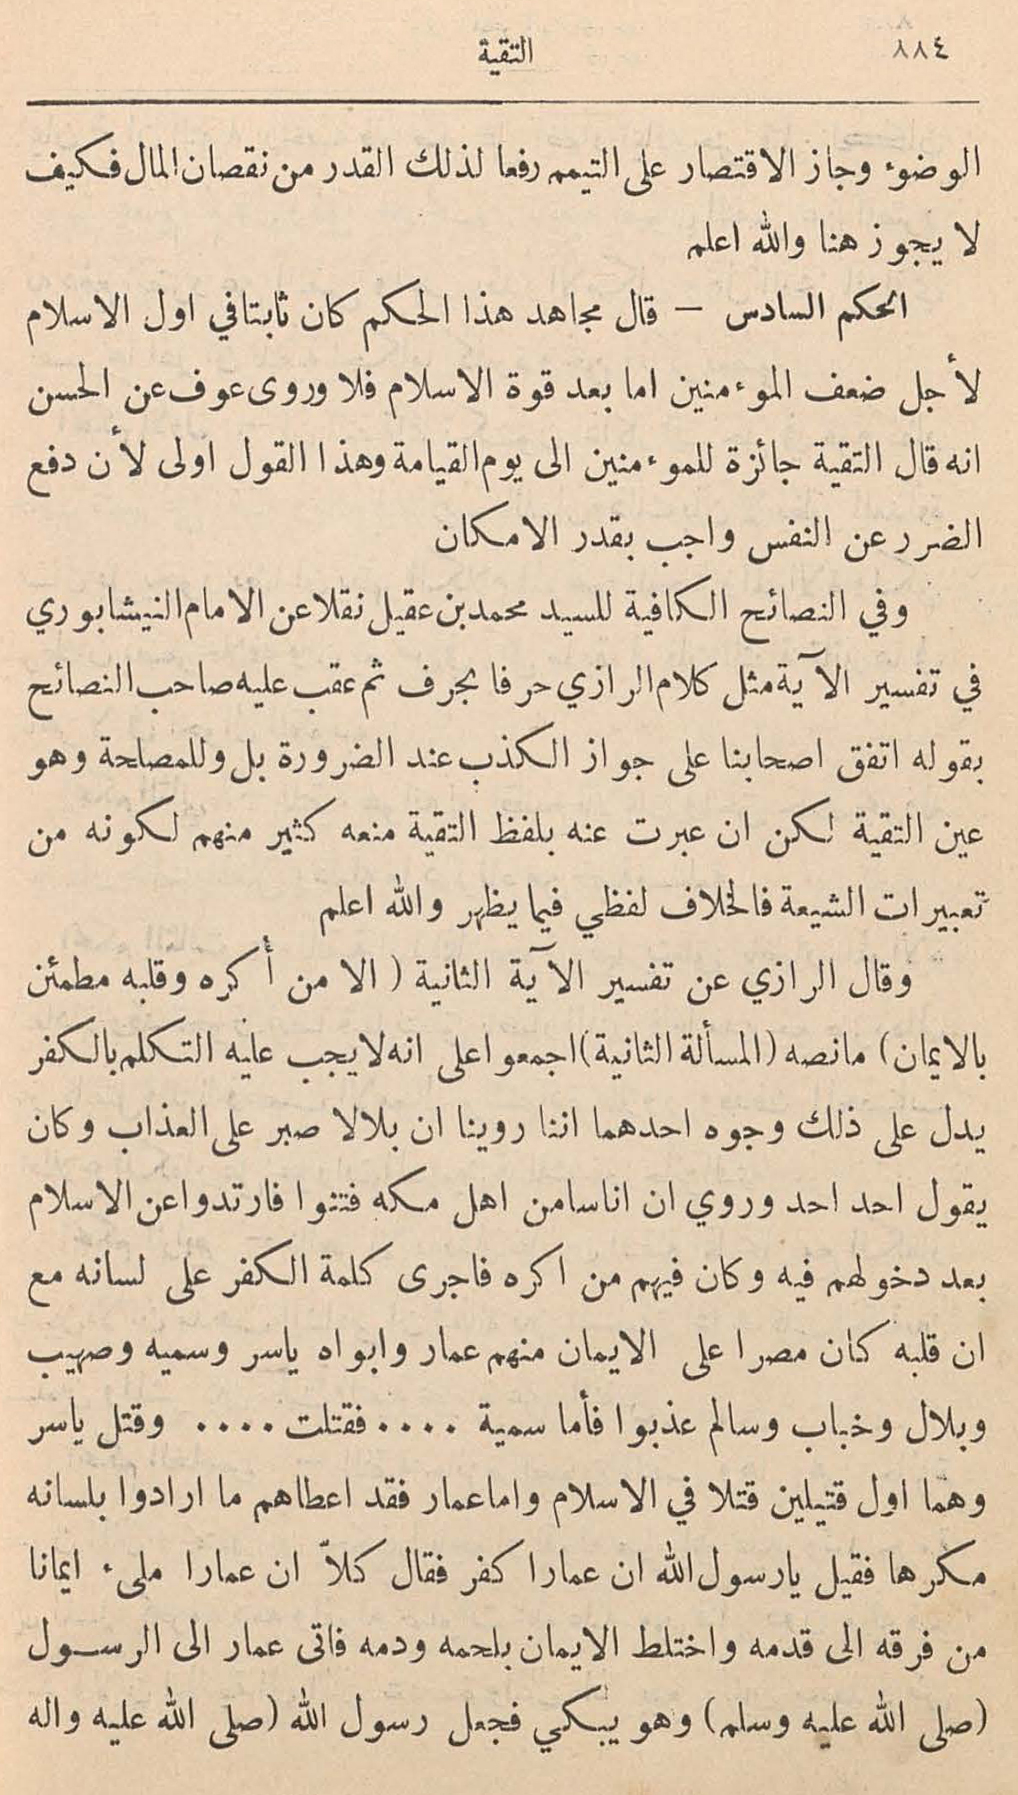 ٨٨٤
التقية
الوضوء وجاز الاقتصار على التيمم رفعا لذلك القدر من نقصان المال فكيف
لا يجوز هنا والله اعلم
الحكم السادس — قال مجاهد هذا الحكم كان ثابتا في اول الاسلام
لأجل ضعف الموءمنين اما بعد قوة الاسلام فلا وروى عوف عن الحسن
انه قال التقية جائزة للموءمنين الى يوم القيامة وهذا القول اولى لأن دفع
الضرر عن النفس واجب بقدر الامكان
وفي النصائح الكافية للسيد محمد بن عقيل نقلا عن الامام النيشابوري
في تفسير الآية مثل كلام الرازي حرفا بحرف ثم عقب عليه صاحب النصائح
بقوله اتفق اصحابنا على جواز الكذب عند الضرورة بل وللمصلحة وهو
عين التقية لكن ان عبرت عنه بلفظ التقية منعه كثير منهم لكونه من
تعبيرات الشيعة فالخلاف لفظي فيما يظهر والله اعلم
وقال الرازي عن تفسير الآية الثانية ( الا من أكره وقلبه مطمئن
بالايمان ) مانصه ( المسألة الثانية ) اجمعوا على انه لا يجب عليه التكلم بالكفر
يدل على ذلك وجوه احدهما اننا روينا ان بلالا صبر على العذاب وكان
يقول احد احد وروي ان اناسا من اهل مكه فتنوا فارتدوا عن الاسلام
بعد دخولهم فيه وكان فيهم من اكره فاجرى كلمة الكفر على لسانه مع
ان قلبه كان مصرا على الايمان منهم عمار وابواه ياسر وسميه وصهيب
وبلال وخباب وسالم عذبوا فأما سمية .... فقتلت .... وقتل ياسر
وهما اول قتيلين قتلا في الاسلام واما عمار فقد اعطاهم ما ارادوا بلسانه
مكرها فقيل يا رسول الله ان عمارا كفر فقال كلاّ ان عمارا ملىء ايمانا
من فرقه الى قدمه واختلط الايمان بلحمه ودمه فاتى عمار الى الرسول
(صلى الله عليه وسلم) وهو يبكي فجعل رسول الله (صلى الله عليه واله